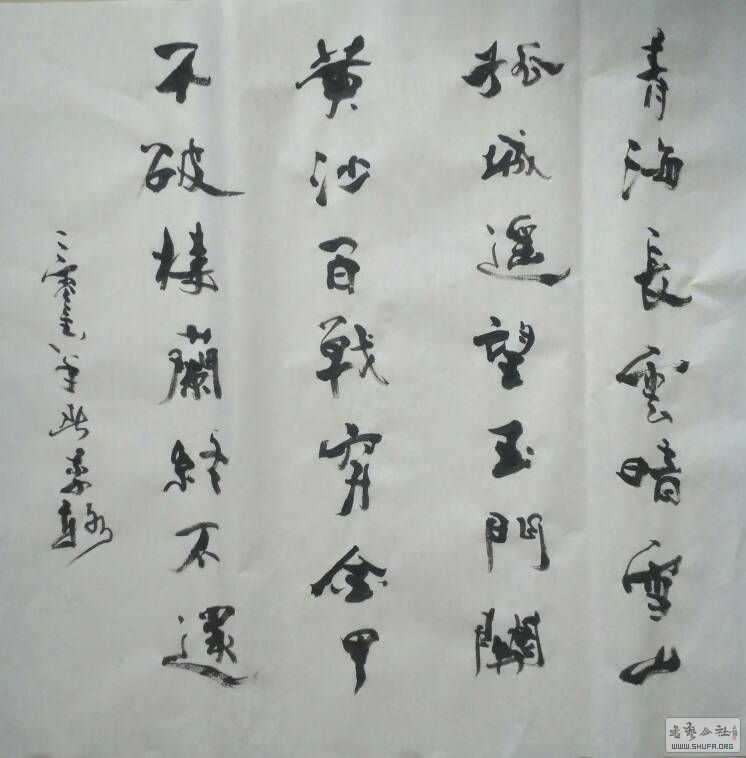 青海長雲暗雪山
孤城遥望玉門關
黄沙百戰穿金甲
不破樓蘭終不還
二零壹八年
书艺公社
WWW.SHUFA.ORG